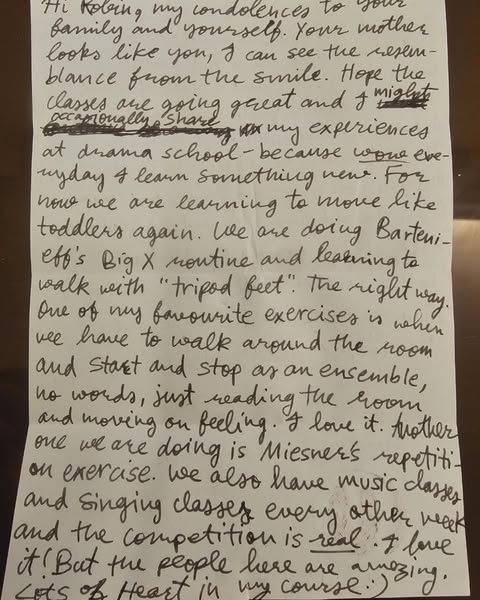 Hi Robing, my condolences to your
family and yourself. Your mother
looks like you, I can see the resem-
blance from the smile. Hope the
classes are going great and I might
occasionally share my experiences
at drama school - because wow eve-
ryday I learn something new. For
now we are learning to move like
toddlers again. We are doing Barteni-
eff's Big X routine and learning to
walk with "tripod feet". The right way.
One of my favourite exercises is when
we have to walk around the room
and start and stop as an ensemble,
no words, just reading the room
and moving on feeling. I love it. Another
one we are doing is Miesner's repetiti-
on exercise. We also have music classes
and singing classes every other week
and the competition is real. I love
it! But the people here are amazing.
Lots of Heart in my course :)